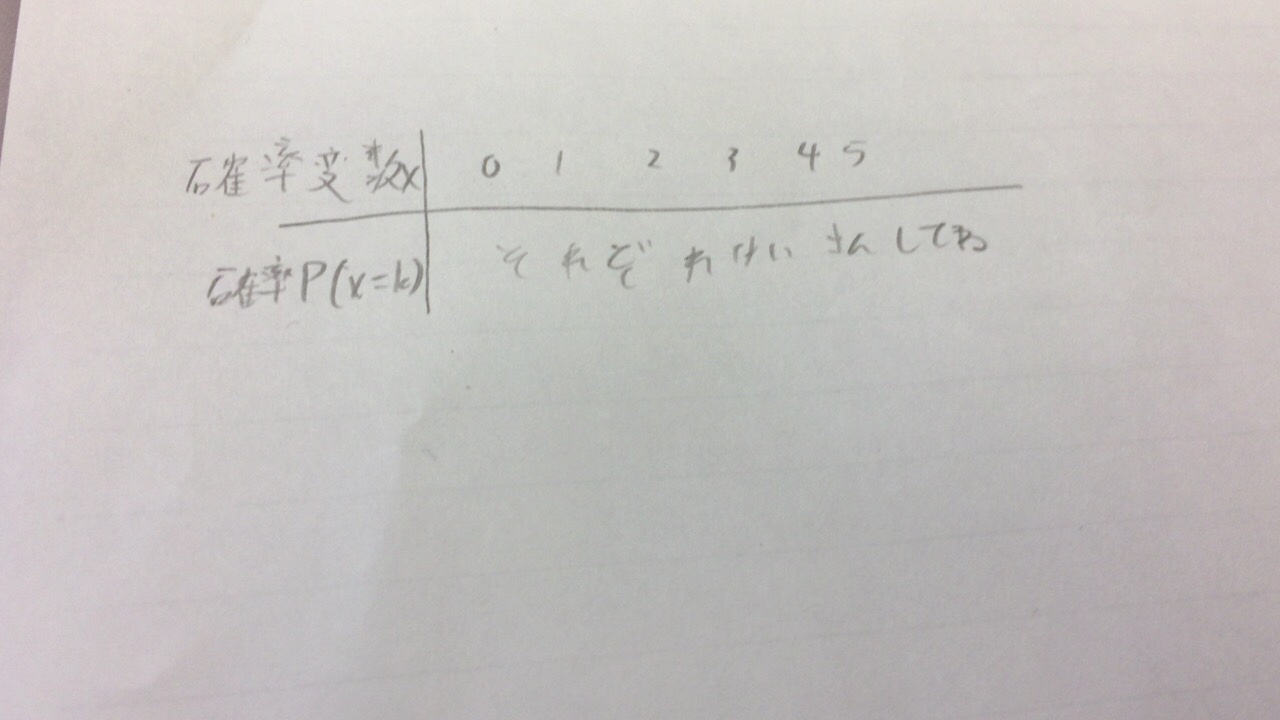 確率変数x 0 1 2 3 4 5
確率P(x=k) それぞれけいさんしてね